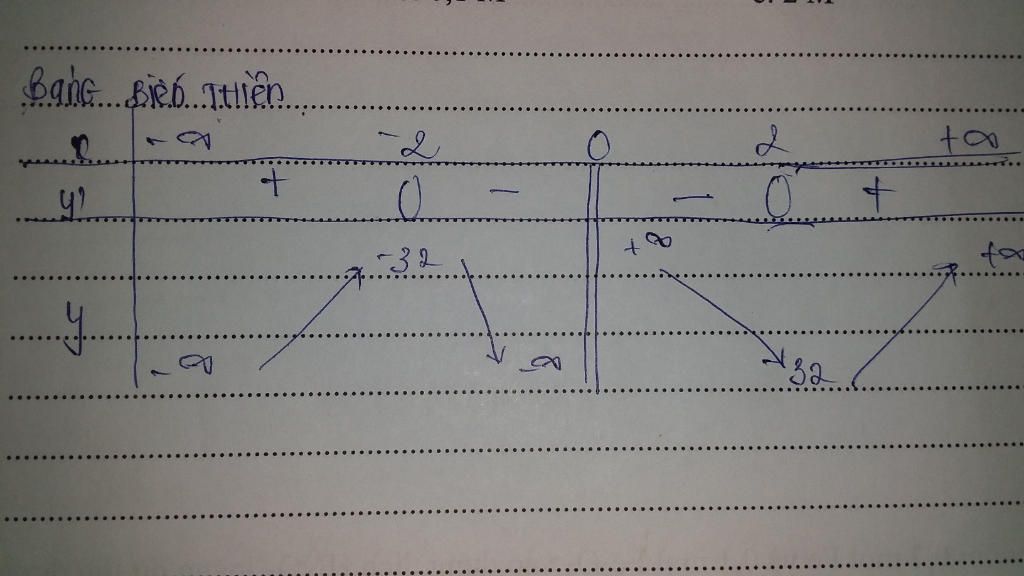 Bảng Biến Thiên
x -∞ -2 0 2 +∞
y' + 0 - - 0 +
-32 +∞ +∞
y
-∞ -∞ 32